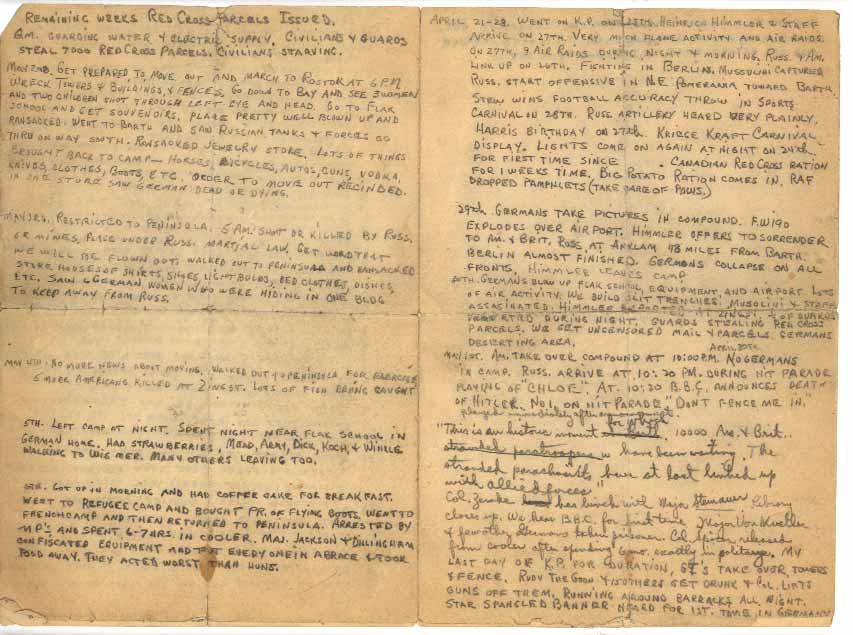 REMAINING WEEKS RED CROSS PARCELS ISSUED.
G.M. GUARDING WATER & ELECTRIC SUPPLY. CIVILIANS & GUARDS
STEAL 7000 RED CROSS PARCELS. CIVILIANS STARVING.
MAY 2ND. GET PREPARED TO MOVE OUT AND MARCH TO ROSTOK AT 6 PM
WRECK TOWERS & BUILDINGS, & FENCES. GO DOWN TO BAY AND SEE 3 WOMEN
AND TWO CHILDREN SHOT THROUGH LEFT EYE AND HEAD. GO TO FLAK
SCHOOL AND GET SOUVENIRS, PLACE PRETTY WELL BLOWN UP AND
RANSACKED. WENT TO BARTH AND SAW RUSSIAN TANKS & FORCES GO
THRU ON WAY SOUTH. RANSACKED JEWELRY STORE. LOTS OF THINGS
BROUGHT BACK TO CAMP — HORSES, BICYCLES, AUTOS, GUNS, VODKA,
KNIVES, CLOTHES, BOOTS, ETC. ORDER TO MOVE OUT RECINDED.
IN ONE STORE SAW GERMAN DEAD OR DYING.
MAY 3RD. RESTRICTED TO PENINSULA. 5 AM. SHOT OR KILLED BY RUSS.
OR MINES, PLACE UNDER RUSS. MARTIAL LAW. GET WORD THAT
WE WILL BE FLOWN OUT. WALKED OUT TO PENINSULA AND RANSACKED
STORE HOUSES OF SHIRTS, SHOES, LIGHT BULBS, BED CLOTHES, DISHES,
ETC. SAW 4 GERMAN WOMEN WHO WERE HIDING IN ONE BLDG
TO KEEP AWAY FROM RUSS.
MAY 4TH. NO MORE NEWS ABOUT MOVING. WALKED OUT TO PENINSULA FOR EXERCISE
5 MORE AMERICANS KILLED AT ZINGST. LOTS OF FISH BEING CAUGHT
5TH. LEFT CAMP AT NIGHT. SPENT NIGHT NEAR FLAK SCHOOL IN
GERMAN HOME. HAD STRAWBERRIES, MEAD, ARMY, DICK, KOCH, &
WALKING TO WISMER. MANY OTHERS LEAVING TOO.
6TH. GOT UP IN MORNING AND HAD COFFEE CAKE FOR BREAKFAST.
WENT TO REFUGEE CAMP AND BOUGHT PR. OF FLYING BOOTS. WENT TO
FRENCH CAMP AND THEN RETURNED TO PENINSULA. ARRESTED BY
MP'S AND SPENT 6-7 HRS. IN COOLER. MAJ. JACKSON & DILLINGHAM
CONFISCATED EQUIPMENT AND PUT EVERYONE IN A BRACE & TOOK
FOOD AWAY. THEY ACTED WORST THAN HUNS.
APRIL 21-28. WENT ON K.P. ON 28TH. HEINRICH HIMMLER & STAFF
ARRIVE ON 27TH. VERY MUCH PLANE ACTIVITY AND AIR RAIDS.
ON 27TH, 9 AIR RAIDS DURING NIGHT & MORNING. RUSS. & AM.
LINK UP ON 26TH. FIGHTING IN BERLIN. MUSSOLINI CAPTURED
RUSS. START OFFENSIVE IN N.E. POMERANIA TOWARD BARTH.
STEW WINS FOOTBALL ACCURACY THROW IN SPORTS
CARNIVAL ON 28TH. RUSS. ARTILLERY HEARD VERY PLAINLY.
HARRIS BIRTHDAY ON 27TH. KRIEGE KRAFT CARNIVAL
DISPLAY. LIGHTS COME ON AGAIN AT NIGHT ON 24TH
FOR FIRST TIME SINCE . CANADIAN RED CROSS RATION
FOR 1 WEEKS TIME. BIG POTATO RATION COMES IN. RAF
DROPPED PAMPHLETS (TAKE CARE OF POWS.)
29TH. GERMANS TAKE PICTURES IN COMPOUND. F.W 190
EXPLODES OVER AIRPORT. HIMMLER OFFERS TO SURRENDER
TO AM. & BRIT. RUSS. AT ANKLAM 48 MILES FROM BARTH.
BERLIN ALMOST FINISHED. GERMANS COLLAPSE ON ALL
FRONTS. HIMMLER LEAVES CAMP.
30TH. GERMANS BLOW UP FLAK SCHOOL, EQUIPMENT AND AIRPORT. LOTS
OF AIR ACTIVITY. WE BUILD SLIT TRENCHES. MUSOLINI & STAFF
ASSASINATED. HIMMLER REPORTED AT ZINGST. OF GUARDS
DESERTED DURING NIGHT. GUARDS STEALING RED CROSS
PARCELS. WE GET UNCENSORED MAIL & PARCELS. GERMANS
DESERTING AREA.
APRIL 30TH.
MAY 1ST. AM. TAKE OVER COMPOUND AT 10:00 P.M. NO GERMANS
IN CAMP. RUSS. ARRIVE AT 10:20 P.M. DURING HIT PARADE
PLAYING OF "CHLOE". AT 10:30 B.B.C. ANNOUNCES DEATH
OF HITLER. NO.1, ON HIT PARADE "DON'T FENCE ME IN."
played immediately after announcement.
for which
"This is an historic moment 10000 Am. & Brit..
stranded paratroopers have been waiting. The
stranded parachutists have at last linked up
with allied forces."
Col. Zemke has lunch with Major Steinauer
closes up. We hear B.B.C. for first time. Major Von Mueller
& few other Germans taken prisoner. Col. Spicer released
from cooler after spending 6 mo. exactly in solitary. MY
LAST DAY OF K.P. FOR DURATION. GI'S TAKE OVER TOWERS
& FENCE. RUDY THE GOON & 15 OTHERS GET DRUNK & COL. LIFTS
GUNS OFF THEM. RUNNING AROUND BARRACKS ALL NIGHT.
STAR SPANGLED BANNER HEARD FOR 1ST. TIME IN GERMANY